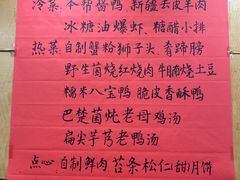 冷菜:本帮酱鸭、新疆去皮羊肉
冰糖油爆虾、糖醋小排
热菜:自制蟹粉狮子头、香蹄膀
野生菌烧红烧肉、牛腩烧土豆
糯米八宝鸭、脆皮香酥鸭
巴楚菌炖老母鸡汤
扁尖芋艿老鸭汤
点心:自制鲜肉、苔条松仁(甜)月饼